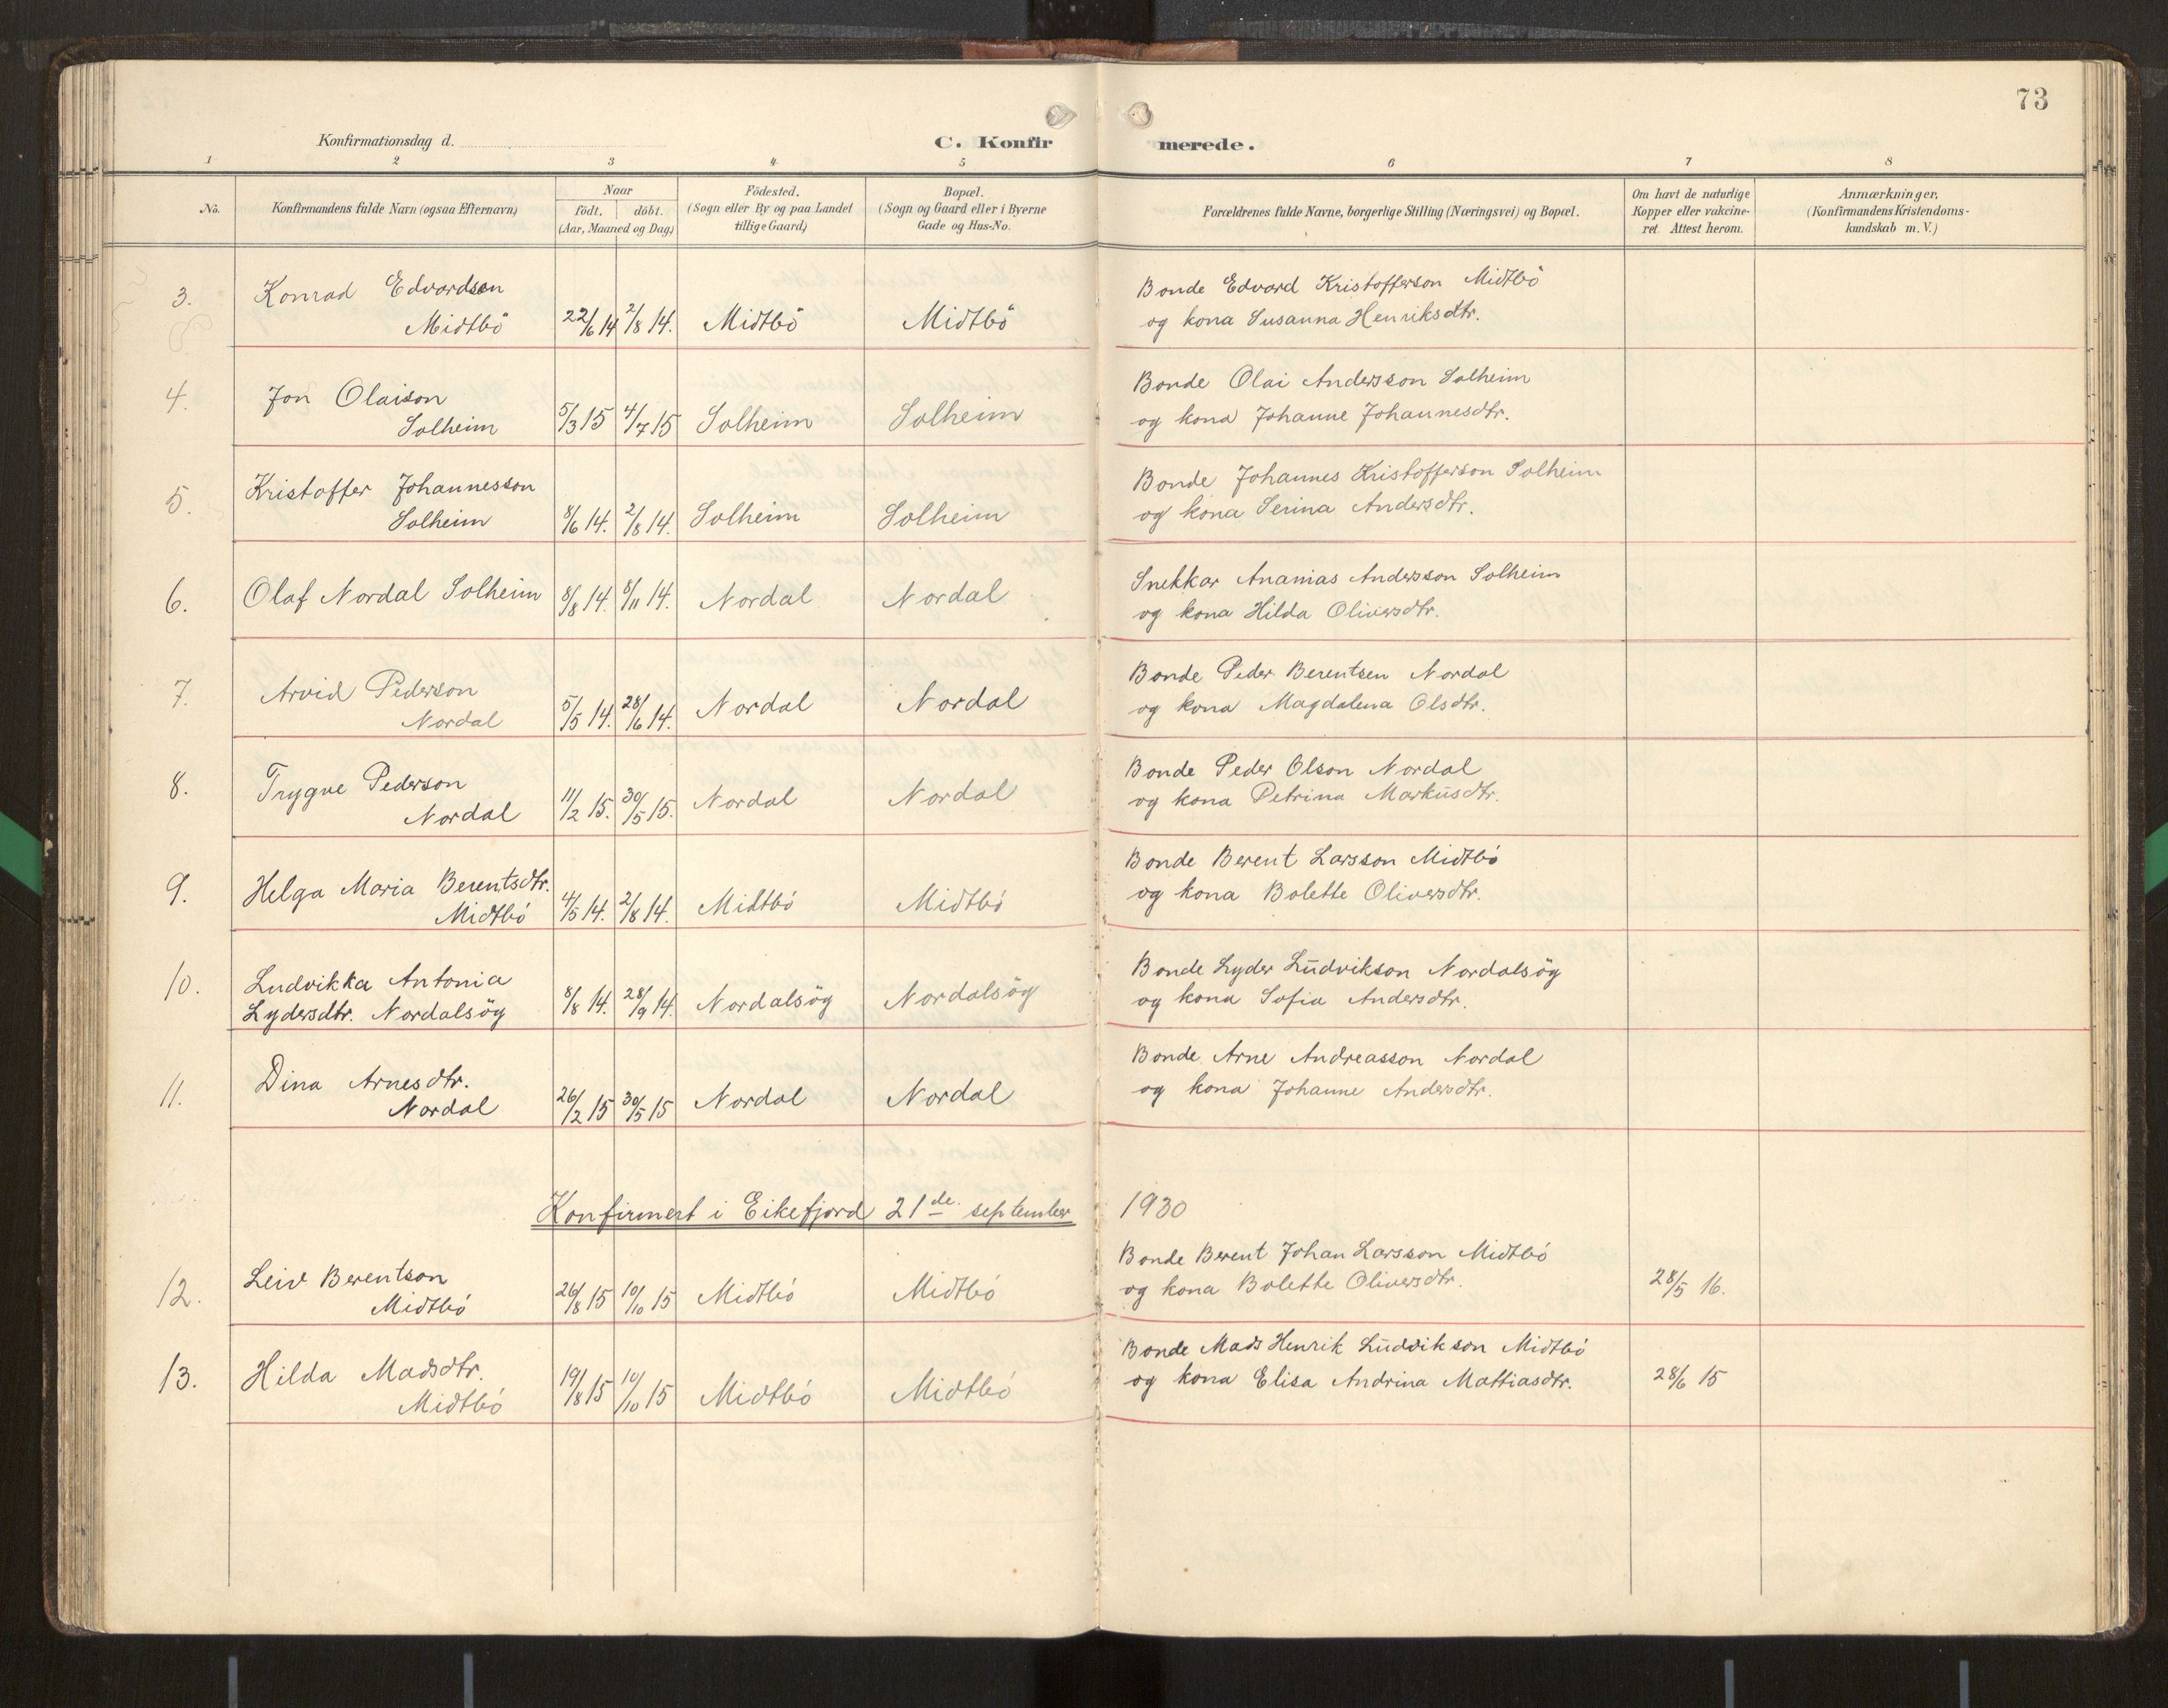 73
Konfirmationsdag d.
C. Konfirmerede.
1 2 3 4 5 6 7 8
No.
Konfirmandens fulde Navn (ogsaa Efternavn)
Naar
födt. döbt.
(Aar, Maaned og Dag)
Födested.
(Sogn eller By og paa Landet
tillige Gaard)
Bopæl.
(Sogn og Gaard eller i Byerne
Gade og Hus-No.
Forældrenes fulde Navne, borgerlige Stilling (Næringsvei) og Bopæl.
Om havt de naturlige
Kopper eller vakcine-
ret. Attest herom.
Anmærkninger,
(Konfirmandens Kristendoms-
kundskab m. V.)
3. Konrad Edvardsen
Midtbö 22/6 14 2/8 14. Midtbö Midtbö
Bonde Edvard Kristofferson Midtbö
og kona Susanna Henriksdtr.
4. Jon Olaison
Solheim 5/3 15 4/7 15 Solheim Solheim
Bonde Olai Andersson Solheim
og kona Johanne Johannesdtr.
5. Kristoffer Johannesson
Solheim 8/6 14. 2/8 14. Solheim Solheim
Bonde Johannes Kristofferson Solheim
og kona Serina Andersdtr.
6. Olaf Nordal Solheim 8/8 14. 8/11 14. Nordal Nordal
Snekkar Ananias Andersson Solheim
og kona Hilda Oliversdtr.
7. Arvid Pederson
Nordal 5/5 14. 28/6 14. Nordal Nordal
Bonde Peder Berentsen Nordal
og kona Magdalena Olsdtr.
8. Trygve Pederson
Nordal 11/2 15. 30/5 15. Nordal Nordal
Bonde Peder Olson Nordal
og kona Petrina Markusdtr.
9. Helga Maria Berentsdtr.
Midtbó 4/5 14. 2/8 14. Midtbó Midtbó
Bonde Berent Larsson Midtbó
og kona Bolette Oliversdtr.
10. Ludvikka Antonia
Lydersdtr. Nordalsög 8/8 14. 28/9 14. Nordalsög Nordalsög
Bonde Lyder Ludvikson Nordalsög
og kona Sofia Andersdtr.
11. Dina Arnesdtr.
Nordal 26/2 15 30/5 15 Nordal Nordal
Bonde Arne Andreasson Nordal
og kona Johanne Andersdtr.
Konfirmert i Eikefjord 21de september 1930
12. Leiv Berentson
Midtbó 26/8 15 10/10 15 Midtbó Midtbó
Bonde Berent Johan Larsson Midtbó
og kona Bolette Oliversdtr. 28/5 16.
13. Hilda Madsdtr.
Midtbó 19/8 15 10/10 15 Midtbó Midtbó
Bonde Mads Henrik Ludvikson Midtbó
og kona Elisa Andrina Mattiasdtr. 28/6 15